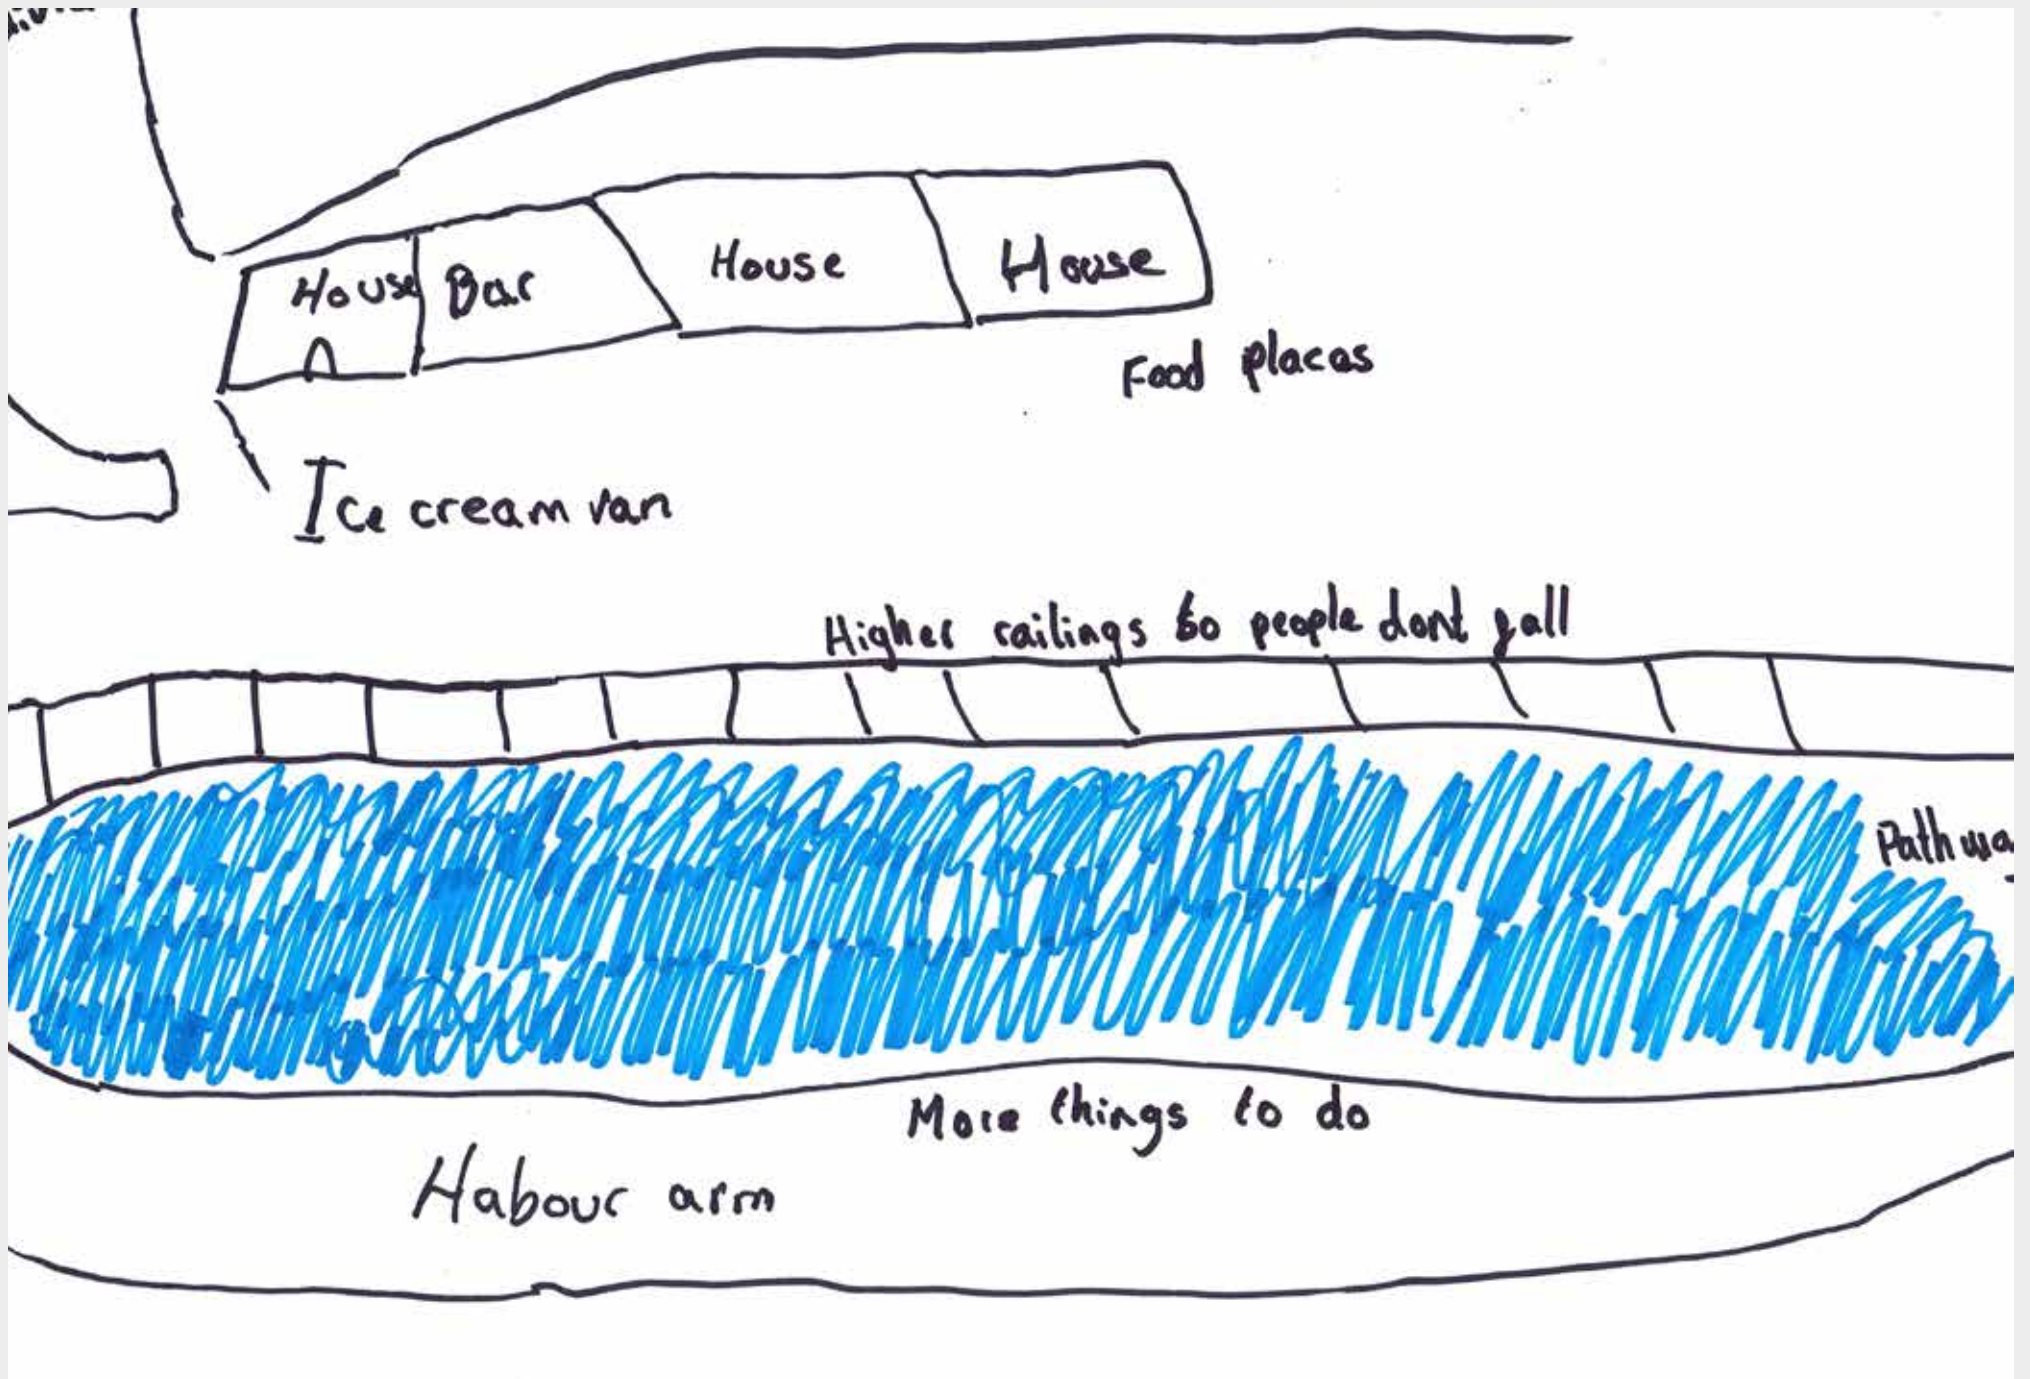 House Bar House House
Food places
Ice cream van
Higher railings so people dont fall
Pathwa
More things to do
Habour arm